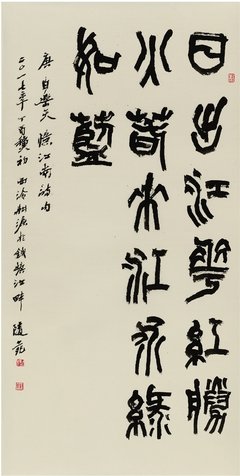 日出江華紅勝
火春來江水綠
如藍
唐白樂天憶江南詩句
二〇一七年丁酉穐初西泠源於錢塘江畔